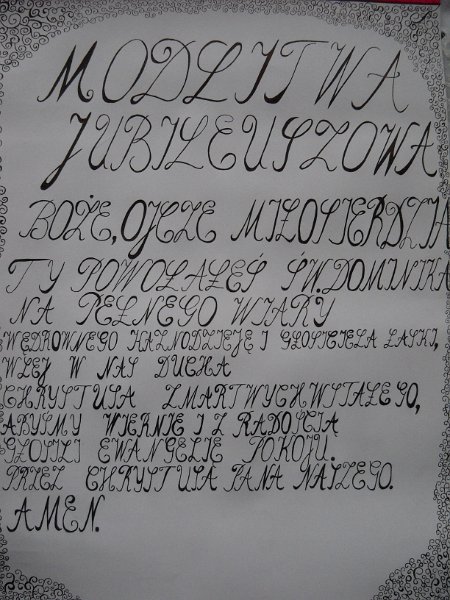 MODLITWA
JUBILEUSZOWA
BOŻE, OJCZE MIŁOSIERDZIA
TY POWOŁAŁEŚ ŚW. DOMINIKA
NA PEŁNEGO WIARY
WĘDROWNEGO KAZNODZIEJĘ I GŁOSICIELA ŁASKI,
WLEJ W NAS DUCHA
CHRYSTUSA ZMARTWYCHWSTAŁEGO,
ABYŚMY WIERNIE I Z RADOŚCIĄ
GŁOSILI EWANGELIĘ POKOJU.
PRZEZ CHRYSTUSA PANA NASZEGO.
AMEN.